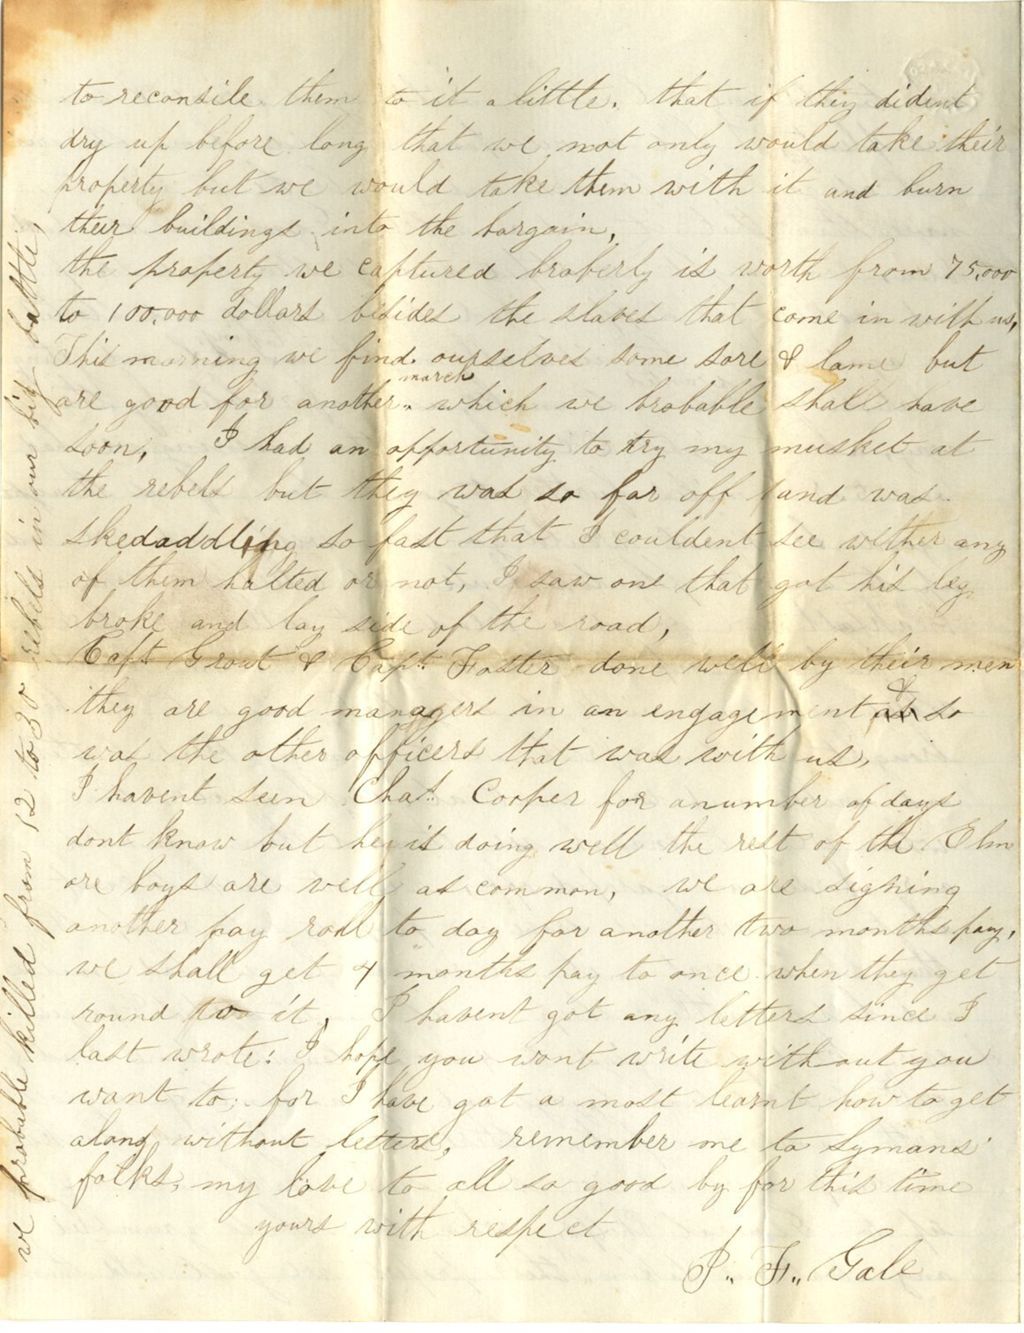 to reconsile them to it a little. that if they dident
dry up before long that we not only would take their
property but we would take them with it and burn
their buildings into the bargain,
the property we captured broberly is worth from 75.000
to 100.000 dollars besides the slaves that come in with us,
This morning we find ourselves some sore & lame but
are good for another march which we brobable shall have
soon, I had an opportunity to try my musket at
the rebels but they was so far off and was
skedaddling so fast that I couldent see wether any
of them halted or not, I saw one that got his leg
broke and lay side of the road,
Capt Grout & Capt Foster done well by their men
they are good managers in an engagement & so
was the other officers that was with us,
I havent seen Chas. Cooper for a number of days
dont know but he is doing well the rest of the Elm
ore boys are well as common, we are signing
another pay roll to day for another two months pay,
we shall get 4 months pay to once when they get
round to it, I havent got any letters since I
last wrote: I hope you wont write without you
want to, for I have got a most learnt how to get
along without letters, remember me to Lymans
folks, my love to all so good by for this time
yours with respect
P. F. Gale
we probable killed from 12 to 30 rebels in our big battle,